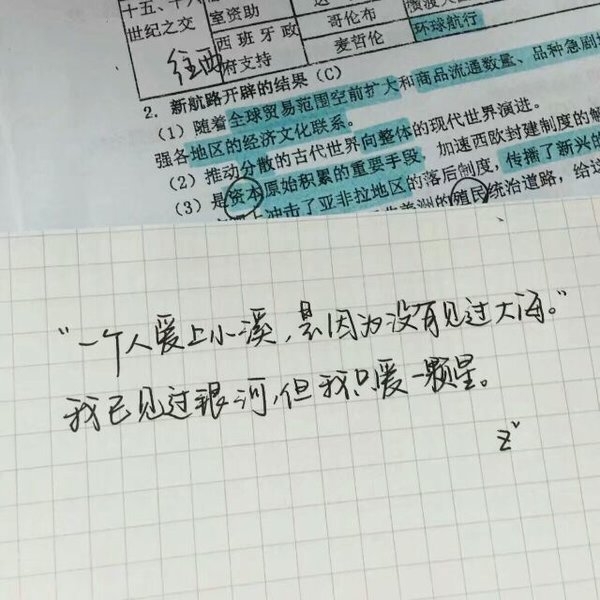 十五、十六
世纪之交
室资助
西班牙政
府支持
哥伦布
麦哲伦
环球航行
往西
2. 新航路开辟的结果(C)
(1)随着全球贸易范围空前扩大和商品流通数量、品种急剧
强各地区的经济文化联系。
(2)推动分散的古代世界向整体的现代世界演进。
(3)是资本原始积累的重要手段,加速西欧封建制度的解
冲击了亚非拉地区的落后制度,传播了新兴的
美洲的殖民统治道路,给这
“一个人爱上小溪,是因为没有见过大海。”
我已见过银河,但我只爱一颗星。
z